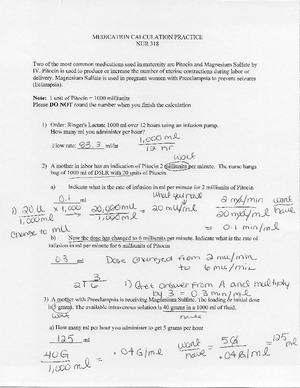 MEDICATION CALCULATION PRACTICE
NUR 318
Two of the most common medications used in maternity are Pitocin and Magnesium Sulfate by
IV. Pitocin is used to produce or increase the number of uterine contractions during labor or
delivery. Magnesium Sulfate is used in pregnant women with Preeclampsia to prevent seizures
(Eclampsia).
Note: 1 unit of Pitocin = 1000 milliunits
Please DO NOT round the number when you finish the calculation
1) Order: Ringer's Lactate 1000 ml over 12 hours using an infusion pump.
How many ml will you administer per hour?
Flow rate: 83.3 ml/hr
1,000 ml
12 hr
want
2) A mother in labor has an infusion of Pitocin 2 milliunits per minute. The nurse hangs
bag of 1000 ml of D5LR with 20 units of Pitocin.
have
a) Indicate what is the rate of infusion in ml per minute for 2 milliunits of Pitocin
0.1 ml
What you have
2 mu/min want
1) 20 U x 1,000 20,000 mu = 20 mu/ml
20 mu/ml have
1,000 ml 1,000 ml
= 0.1 ml/min
Change to mu
b) Now the dose has changed to 6 milliunits per minute. Indicate what is the rate of
infusion in ml per minute for 6 milliunits of Pitocin
0.3 ml Dose changed from 2 mu/min
to 6 mu/min
2 T 6
3
1) Get answer from A and multiply
by 3 = 0.3 ml/min
3) A mother with Preeclampsia is receiving Magnesium Sulfate. The loading or initial dose
is 5 grams. The available intravenous solution is 40 grams in a 1000 ml of fluid.
want have
a) How many ml per hour you administer to get 5 grams per hour
125 ml
want 5G = 125 ml
have .04G/ml
40G = .04G/ml
1,000 ml